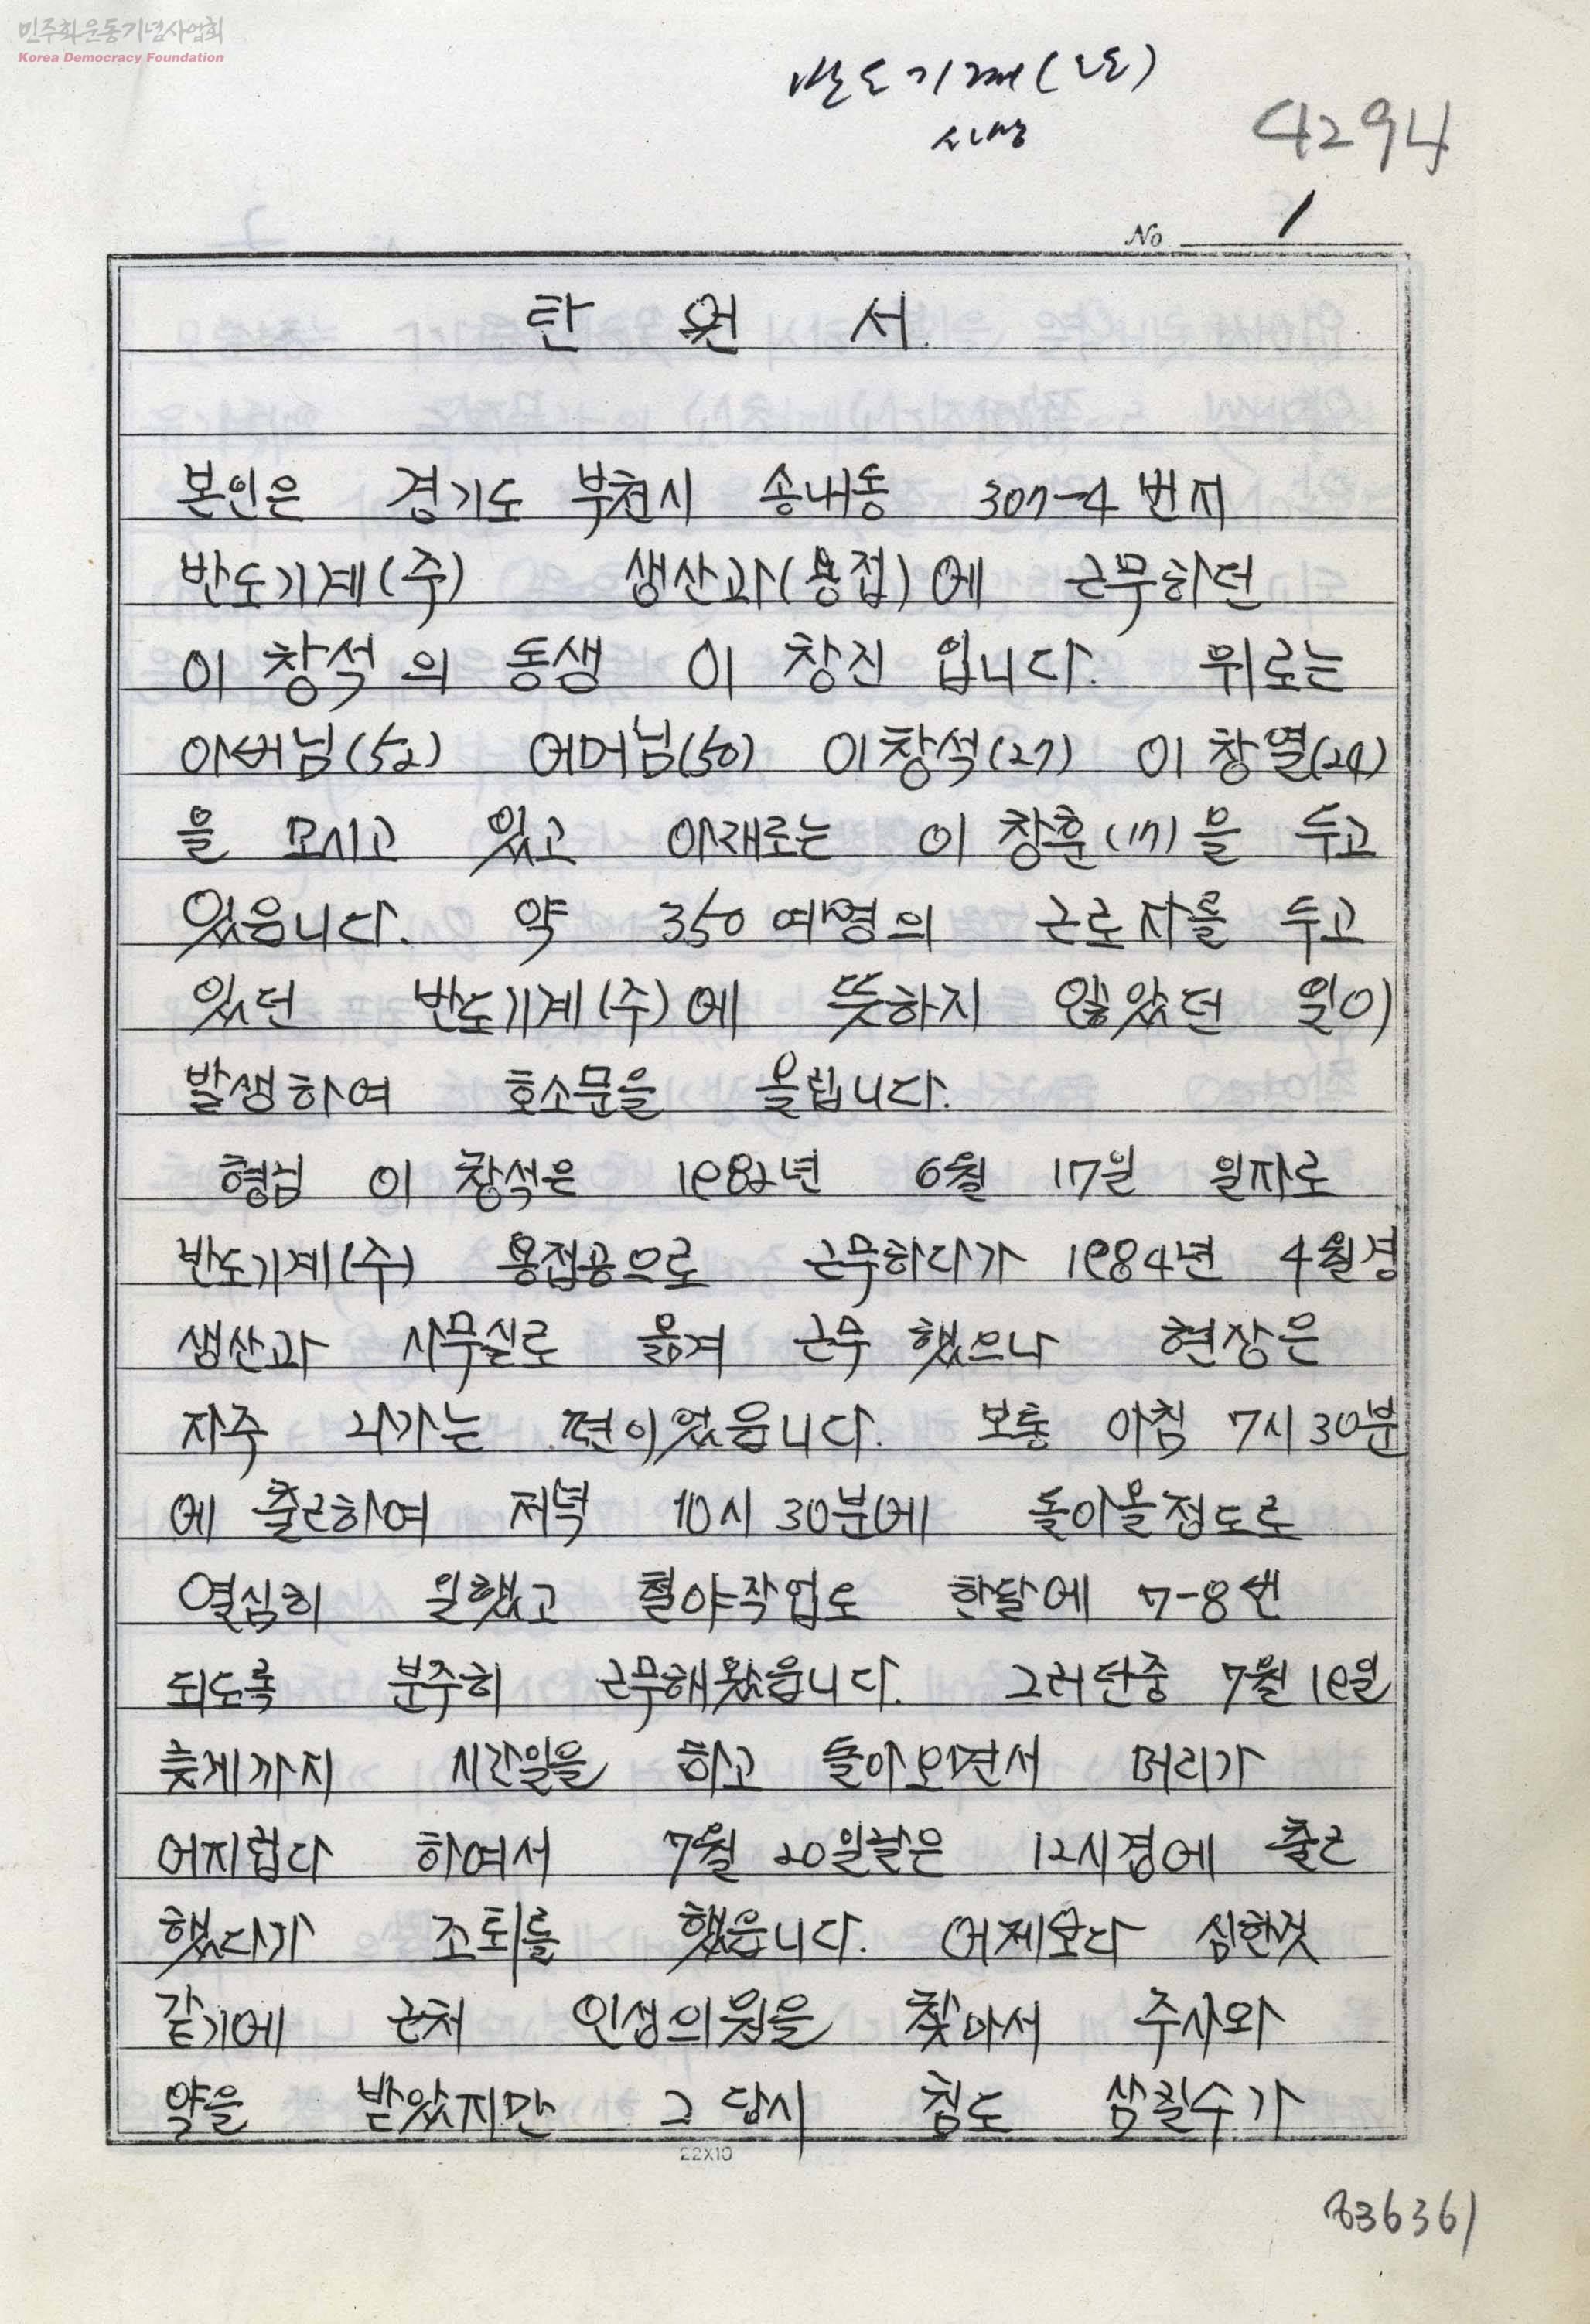 민주화운동기념사업회
Korea Democracy Foundation
반도기계(노조)
4294
No 1
탄 원 서.
본인은 경기도 부천시 송내동 307-4 번지
반도기계(주) 생산과(용접)에 근무하던
이 창석의 동생 이 창진 입니다. 위로는
아버님(52) 어머님(50) 이창석(27) 이 창열(24)
을 모시고 있고 아래로는 이 창훈(17)을 두고
있읍니다. 약 350여명의 근로자를 두고
있던 반도기계(주)에 뜻하지 않았던 일이
발생하여 호소문을 올립니다.
형님 이 창석은 1982년 6월 17일 일자로
반도기계(주) 용접공으로 근무하다가 1984년 4월경
생산과 사무실로 옮겨 근무 했으나 현장은
자주 나가는 편이었읍니다. 보통 아침 7시 30분
에 출근하여 저녁 10시 30분에 돌아올정도로
열심히 일했고 철야작업도 한달에 7-8번
되도록 분주히 근무해왔읍니다. 그러던중 7월 19일
늦게까지 시간일을 하고 돌아오면서 머리가
어지럽다 하여서 7월 20일날은 12시경에 출근
했다가 조퇴를 했읍니다. 어제보다 심한것
같기에 근처 인생의원을 찾아서 주사와
약을 받았지만 그 당시 침도 삼킬수가
22X10
836361